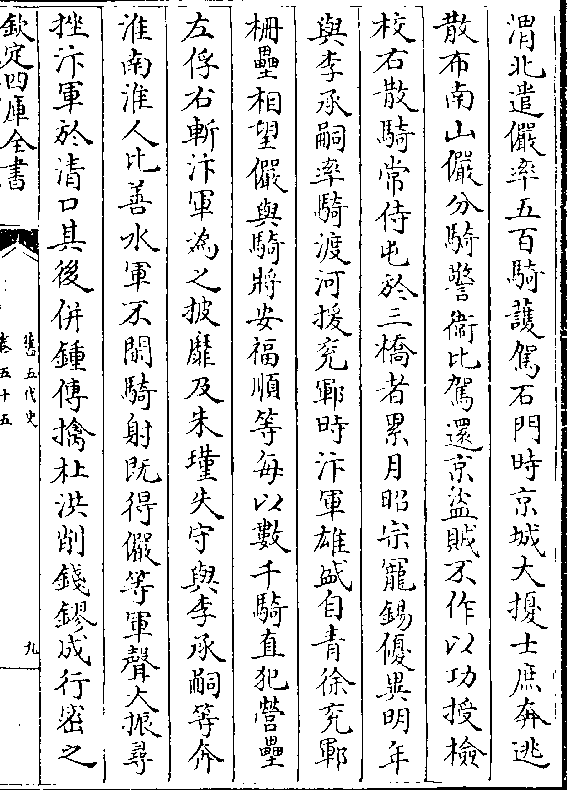 渭北遣儼率五百騎護駕石門時京城大擾士庶奔逃
散布南山儼分騎警衛比駕還京盜賊不作以功授檢
校右散騎常侍屯於三橋者累月昭宗寵錫優異明年
與李承嗣率騎渡河援兖鄆時汴軍雄盛自青徐兖鄆
柵壘相望儼與騎將安福順等每以數千騎直犯營壘
左俘右斬汴軍為之披靡及朱瑾失守與李承嗣等奔
淮南淮人比善水軍不閑騎射既得儼等軍聲大振尋
挫汴軍於清口其後併鍾傳擒杜洪削錢鏐成行密之
欽定四庫全書
舊五代史
卷五十五
九